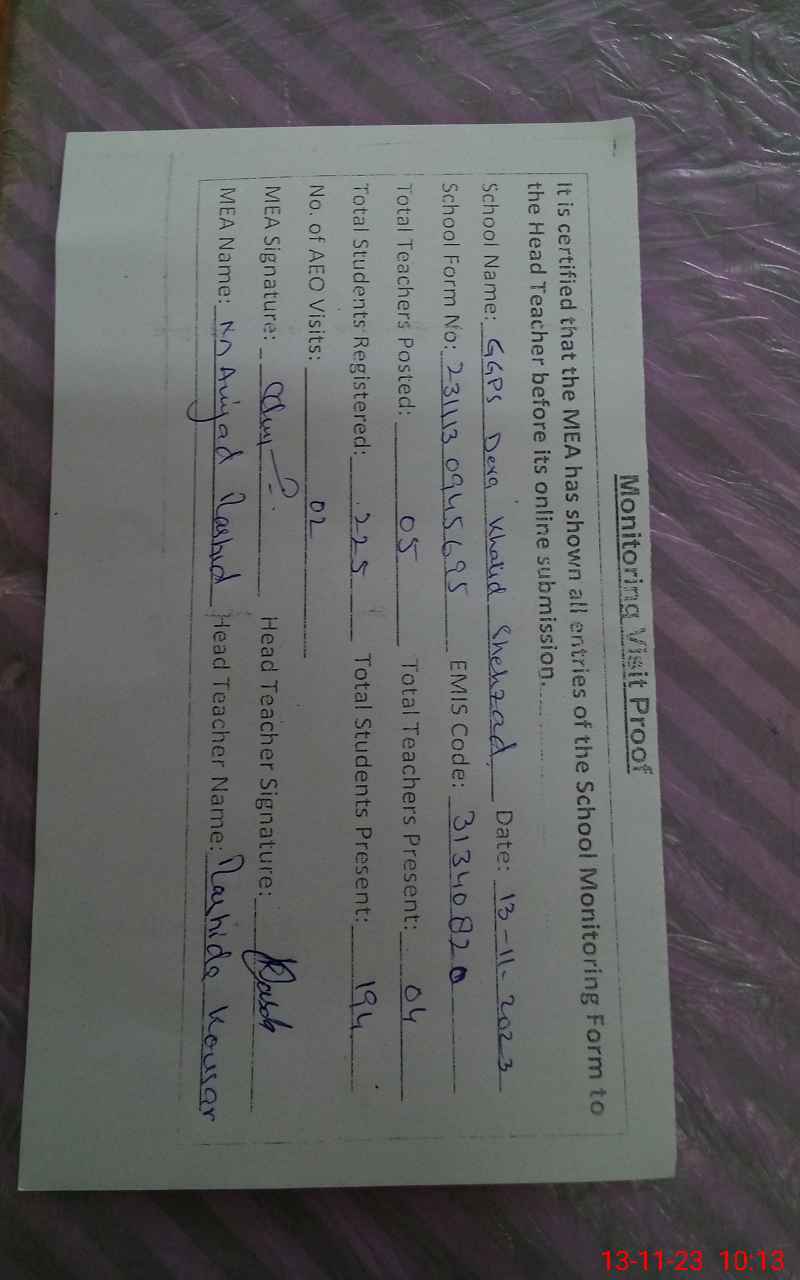 Monitoring Visit Proof
It is certified that the MEA has shown all entries of the School Monitoring Form to
the Head Teacher before its online submission.
School Name: GGPS Dera Khalid Shehzad Date: 13-11-2023
School Form No: 231113 0945695 EMIS Code: 31340820
Total Teachers Posted: 05 Total Teachers Present: 04
Total Students Registered: 225 Total Students Present: 194
No. of AEO Visits: 02
MEA Signature: Head Teacher Signature:
MEA Name: Amjad Rashid Head Teacher Name: Rashida Kousar
13-11-23 10:13